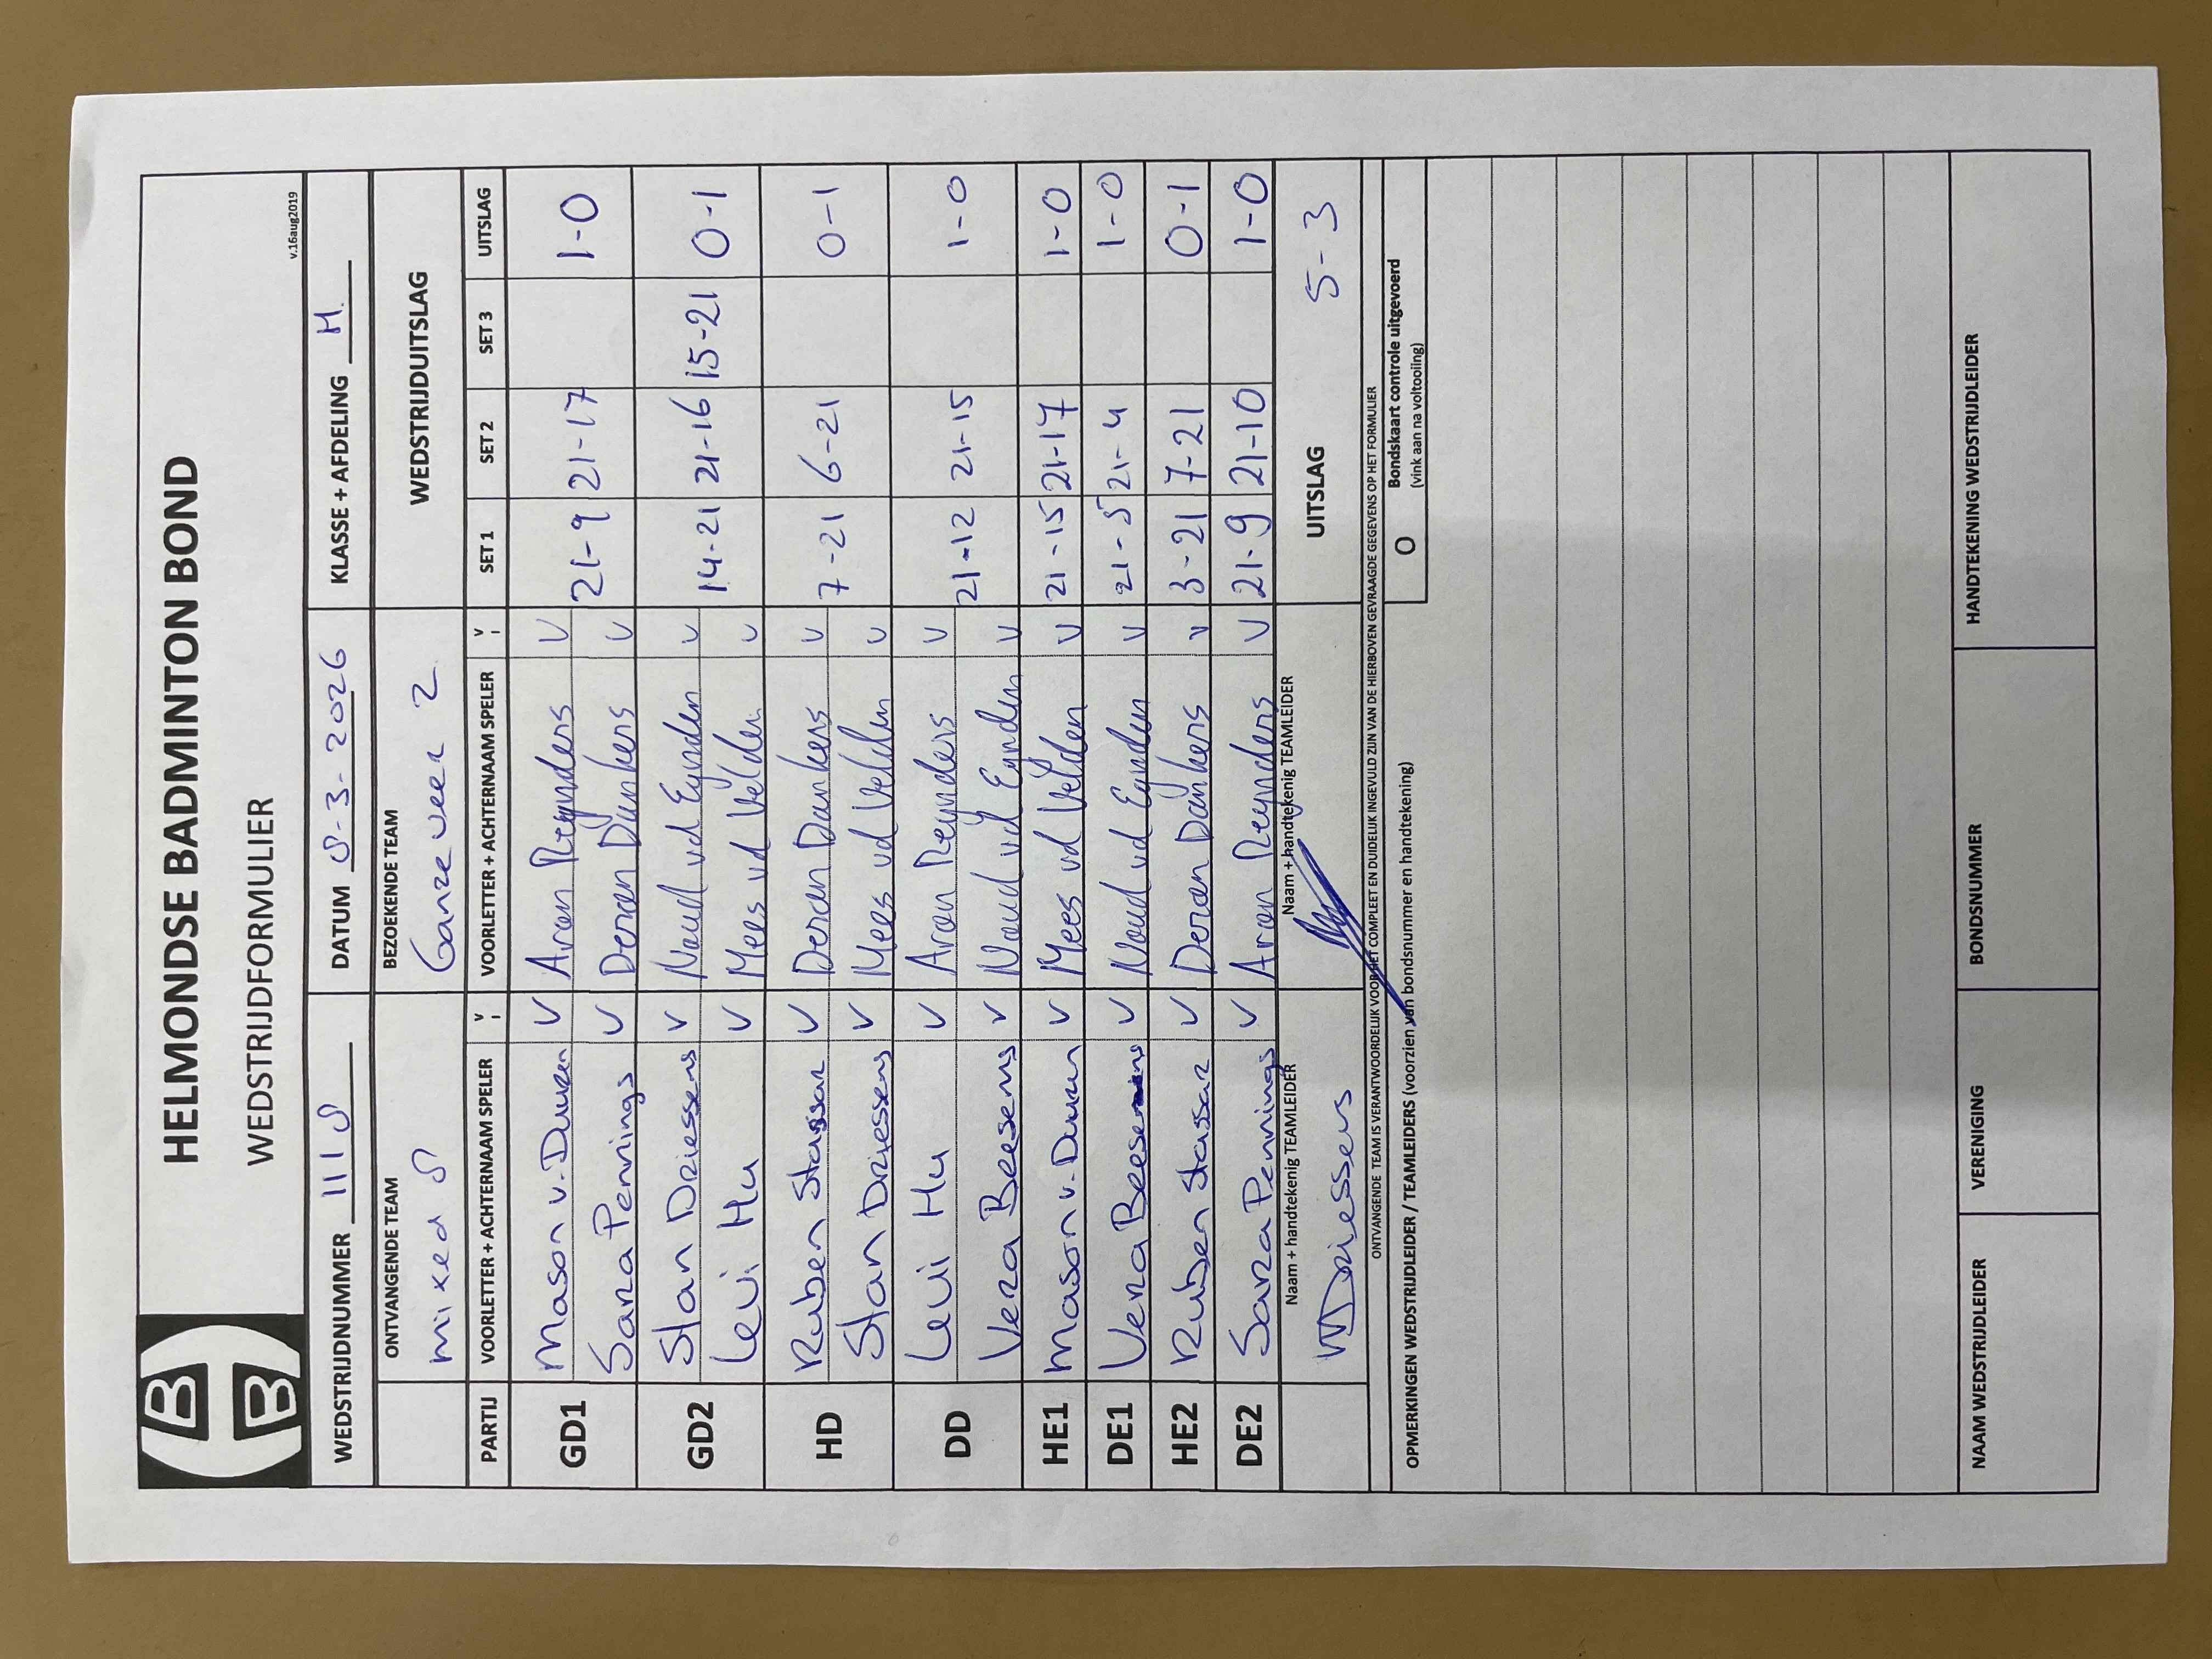 HELMONDSE BADMINTON BOND
WEDSTRIJDFORMULIER
v.16aug2019
WEDSTRIJDNUMMER 1118 DATUM 8-3-2026 KLASSE + AFDELING H.
ONTVANGENDE TEAM BEZOEKENDE TEAM WEDSTRIJDUITSLAG
mixed 8 Ganzeveer 2
PARTIJ VOORLETTER + ACHTERNAAM SPELER V VOORLETTER + ACHTERNAAM SPELER V SET 1 SET 2 SET 3 UITSLAG
GD1 Mason v. Duuren V Aron Reynders V 21-9 21-17 1-0
Sara Pennings V Deran Dankers V
GD2 Stan Driessens V Noud vd Eynden V 14-21 21-16 15-21 0-1
Levi Hu V Mees vd Velden V
HD Ruben Stassar V Deran Dankers V 7-21 6-21 0-1
Stan Driessens V Mees vd Velden V
DD Levi Hu V Aron Reynders V 21-12 21-15 1-0
Vera Beesems V Noud vd Eynden V
HE1 Mason v. Duuren V Mees vd Velden V 21-15 21-17 1-0
DE1 Vera Beesems V Noud vd Eynden V 21-5 21-4 1-0
HE2 Ruben Stassar V Deran Dankers V 3-21 7-21 0-1
DE2 Sara Pennings V Aron Reynders V 21-9 21-10 1-0
Naam + handtekenig TEAMLEIDER Naam + handtekenig TEAMLEIDER UITSLAG 5-3
Driessens
ONTVANGENDE TEAM IS VERANTWOORDELIJK VOOR HET COMPLEET EN DUIDELIJK INGEVULD ZIJN VAN DE HIERBOVEN GEVRAAGDE GEGEVENS OP HET FORMULIER
OPMERKINGEN WEDSTRIJDLEIDER / TEAMLEIDERS (voorzien van bondsnummer en handtekening) O Bondskaart controle uitgevoerd
(vink aan na voltooiing)
NAAM WEDSTRIJDLEIDER VERENIGING BONDSNUMMER HANDTEKENING WEDSTRIJDLEIDER